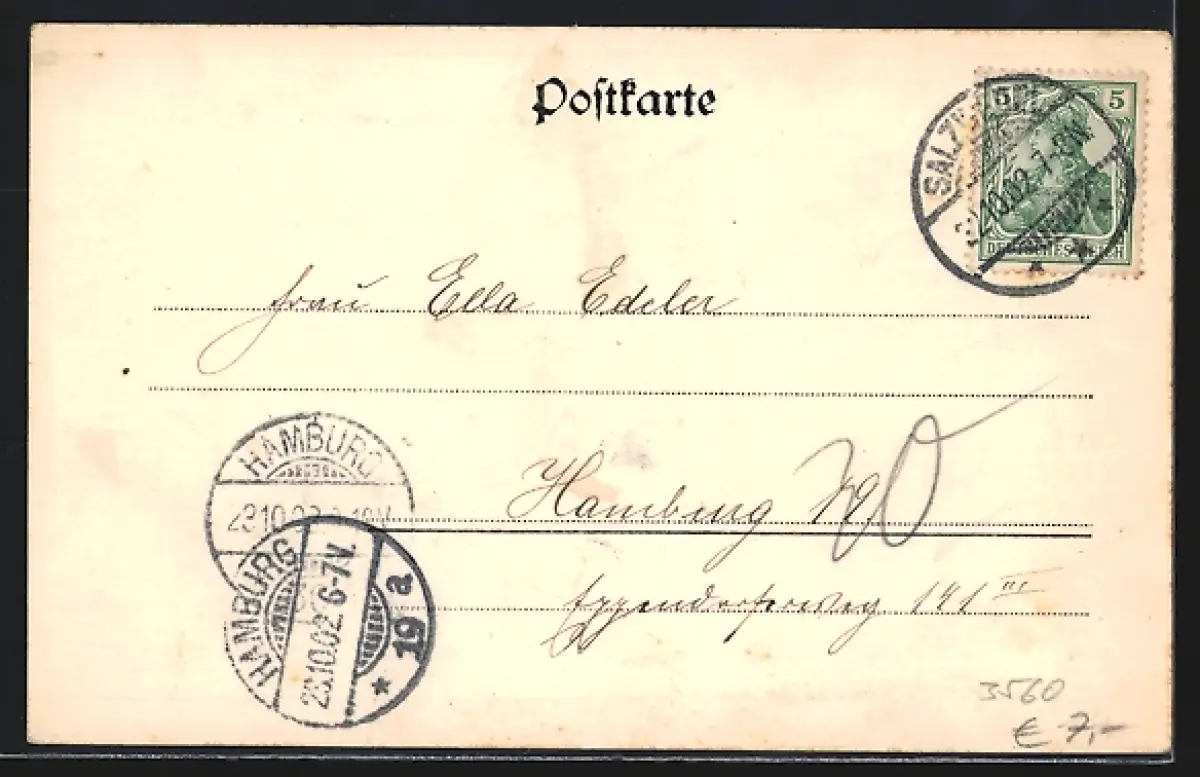 Postkarte
5 5
DEUTSCHES REICH
SALZ
10.02. 7-8N.
Frau Ella Edeler
Hamburg
Eppendorferweg 141 III
HAMBURG
23.10.02
HAMBURG
23.10.02. 6-7V.
* 19 a
3560
€ 7,-